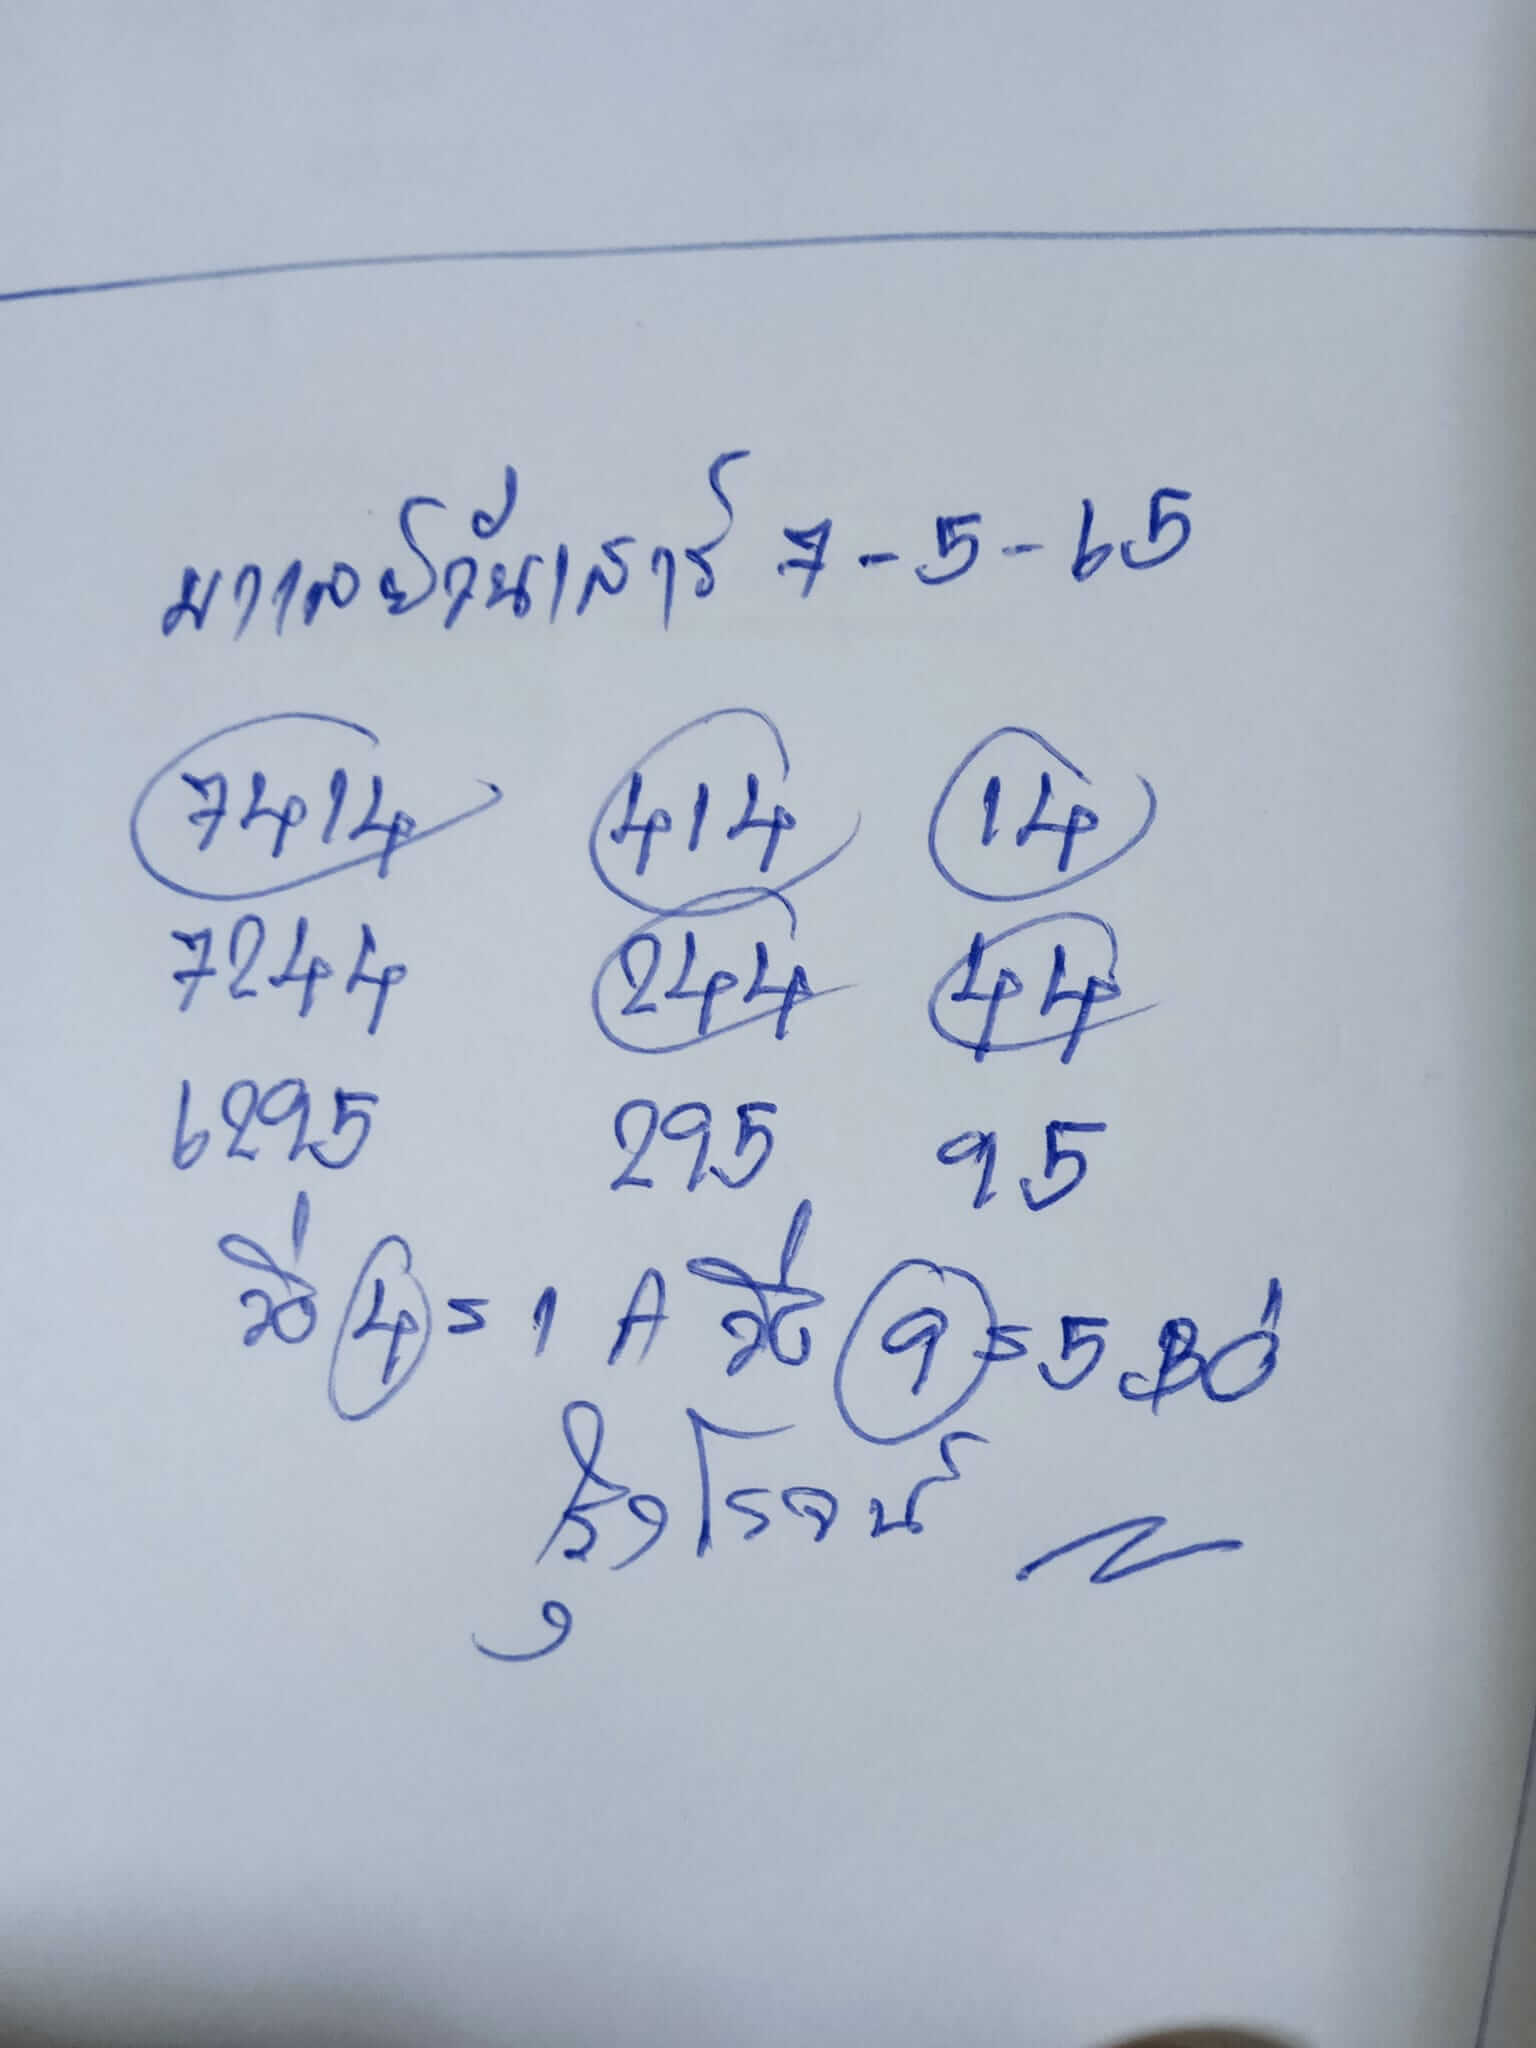 มาเลย์วันเสาร์ 7-5-65
7414 414 14
7244 244 44
6295 295 95
วิ่ง 4 = 1 A วิ่ง 9 = 5 B
รุ่งโรจน์